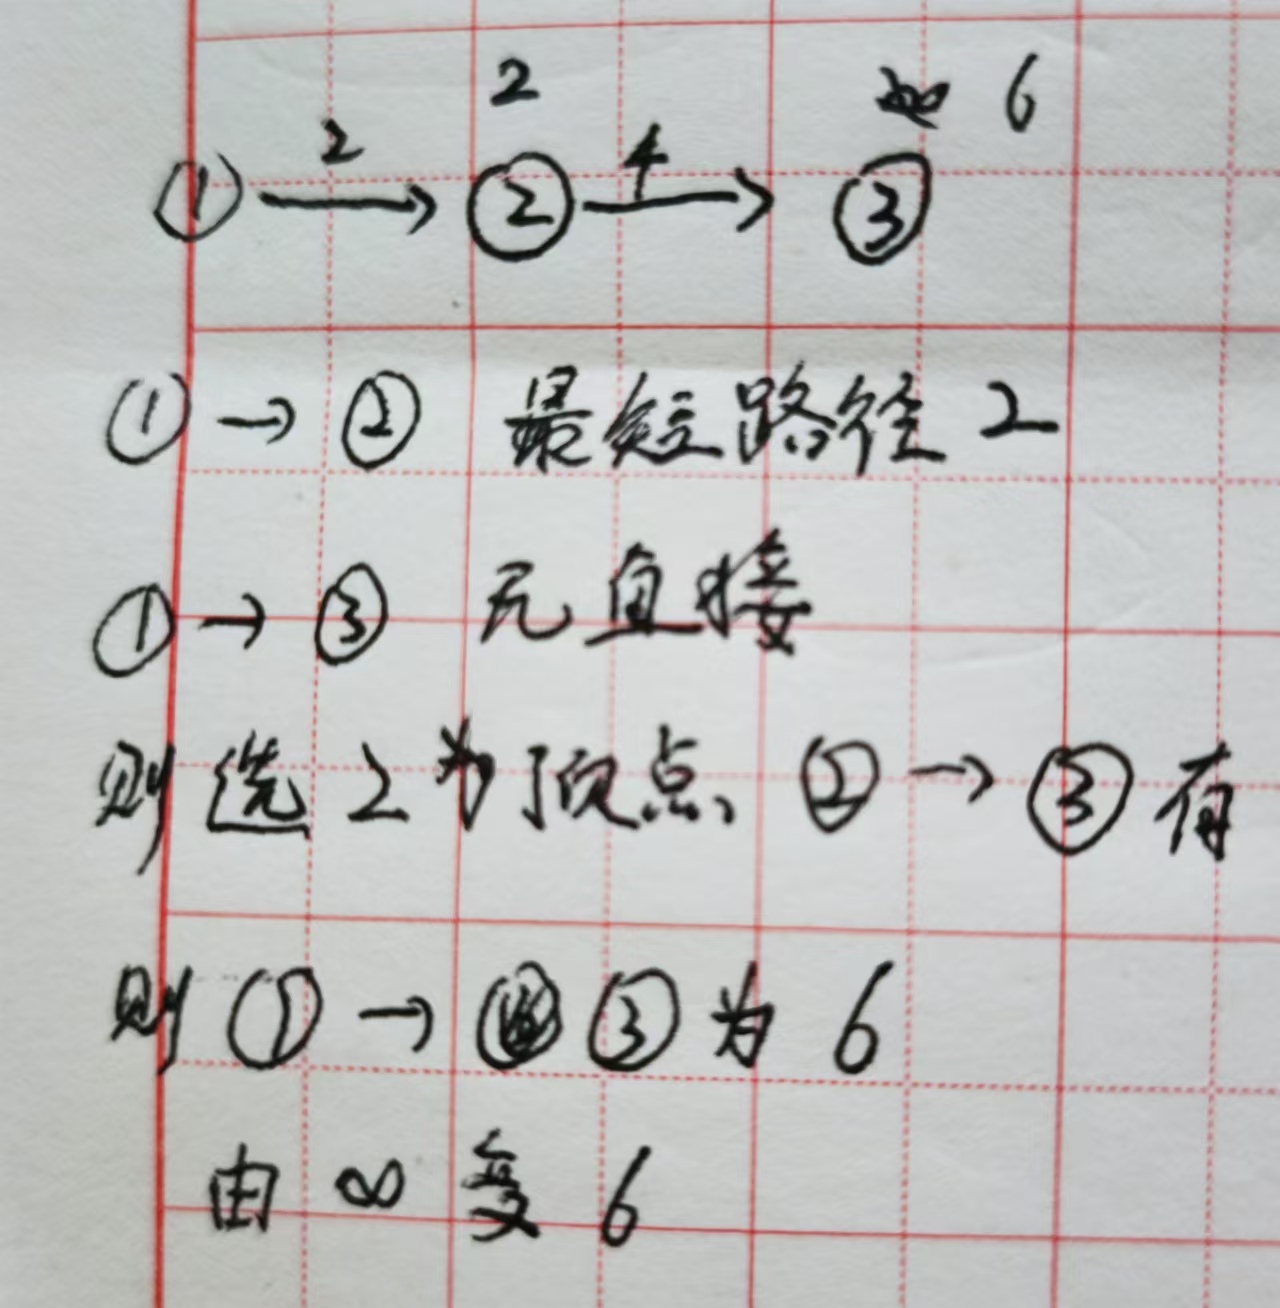 2 ∞ 6
① 2→ ② 4→ ③
①→② 最短路径2
①→③ 无直接
则选2为顶点、②→③有
则①→③为6
由∞变6